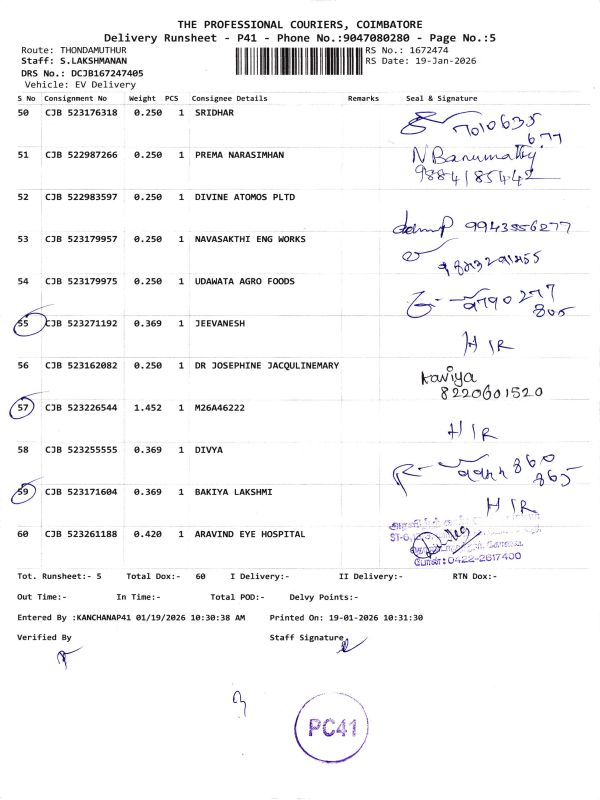 THE PROFESSIONAL COURIERS, COIMBATORE
Delivery Runsheet - P41 - Phone No.:9047080280 - Page No.:5
Route: THONDAMUTHUR
RS No.: 1672474
Staff: S.LAKSHMANAN
RS Date: 19-Jan-2026
DRS No.: DCJB167247405
Vehicle: EV Delivery
S No Consignment No Weight PCS Consignee Details Remarks Seal & Signature
50 CJB 523176318 0.250 1 SRIDHAR 7010635
677
51 CJB 522987266 0.250 1 PREMA NARASIMHAN N Banumathy
9884185442
52 CJB 522983597 0.250 1 DIVINE ATOMOS PLTD
9943556277
53 CJB 523179957 0.250 1 NAVASAKTHI ENG WORKS
54 CJB 523179975 0.250 1 UDAWATA AGRO FOODS 9790277
805
55 CJB 523271192 0.369 1 JEEVANESH
H I R
56 CJB 523162082 0.250 1 DR JOSEPHINE JACQULINEMARY Kaviya
8220601520
57 CJB 523226544 1.452 1 M26A46222
H I R
58 CJB 523255555 0.369 1 DIVYA
865
59 CJB 523171604 0.369 1 BAKIYA LAKSHMI
H I R
60 CJB 523261188 0.420 1 ARAVIND EYE HOSPITAL
போன்: 0422-2617400
Tot. Runsheet:- 5 Total Dox:- 60 I Delivery:- II Delivery:- RTN Dox:-
Out Time:- In Time:- Total POD:- Delvy Points:-
Entered By :KANCHANAP41 01/19/2026 10:30:38 AM Printed On: 19-01-2026 10:31:30
Verified By Staff Signature
PC41